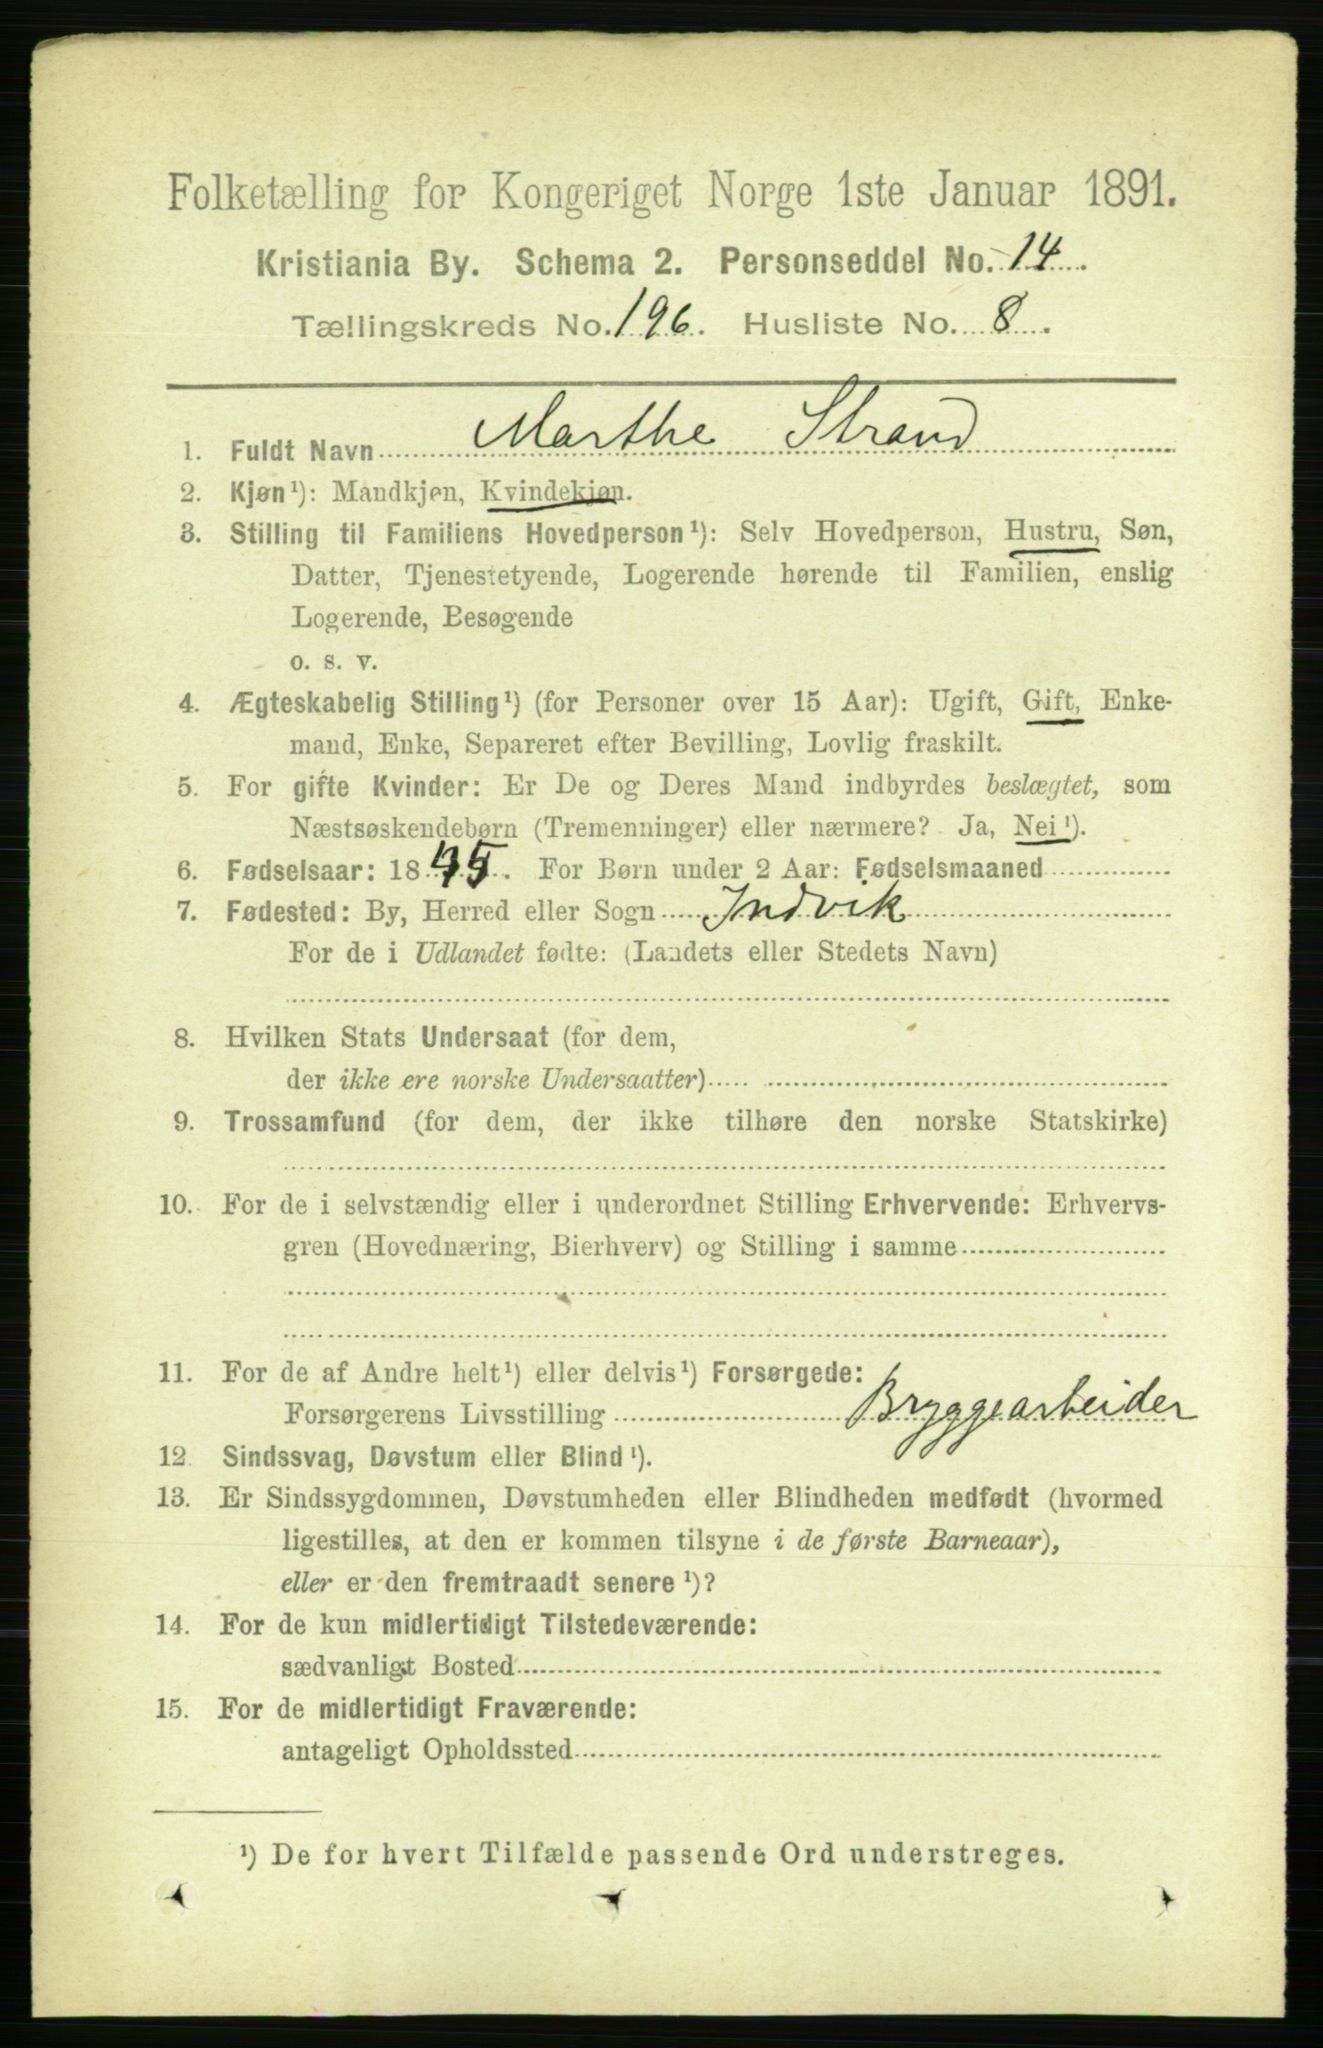 Folketælling for Kongeriget Norge 1ste Januar 1891.
Kristiania By. Schema 2. Personseddel No. 14.
Tællingskreds No. 196. Husliste No. 8.
1. Fuldt Navn Marthe Strand
2. Kjøn¹): Mandkjøn, Kvindekjøn.
3. Stilling til Familiens Hovedperson¹): Selv Hovedperson, Hustru, Søn,
Datter, Tjenestetyende, Logerende hørende til Familien, enslig
Logerende, Besøgende
o. s. v.
4. Ægteskabelig Stilling¹) (for Personer over 15 Aar): Ugift, Gift, Enke-
mand, Enke, Separeret efter Bevilling, Lovlig fraskilt.
5. For gifte Kvinder: Er De og Deres Mand indbyrdes beslægtet, som
Næstsøskendebørn (Tremenninger) eller nærmere? Ja, Nei¹).
6. Fødselsaar: 18 . For Børn under 2 Aar: Fødselsmaaned
7. Fødested: By, Herred eller Sogn Indvik
For de i Udlandet fødte: (Landets eller Stedets Navn)
8. Hvilken Stats Undersaat (for dem,
der ikke ere norske Undersaatter)
9. Trossamfund (for dem, der ikke tilhøre den norske Statskirke)
10. For de i selvstændig eller i underordnet Stilling Erhvervende: Erhvervs-
gren (Hovednæring, Bierhverv) og Stilling i samme
11. For de af Andre helt¹) eller delvis¹) Forsørgede:
Forsørgerens Livsstilling Bryggearbeider
12. Sindssvag, Døvstum eller Blind¹).
13. Er Sindssygdommen, Døvstumheden eller Blindheden medfødt (hvormed
ligestilles, at den er kommen tilsyne i de første Barneaar),
eller er den fremtraadt senere¹)?
14. For de kun midlertidigt Tilstedeværende:
sædvanligt Bosted
15. For de midlertidigt Fraværende:
antageligt Opholdssted
¹) De for hvert Tilfælde passende Ord understreges.